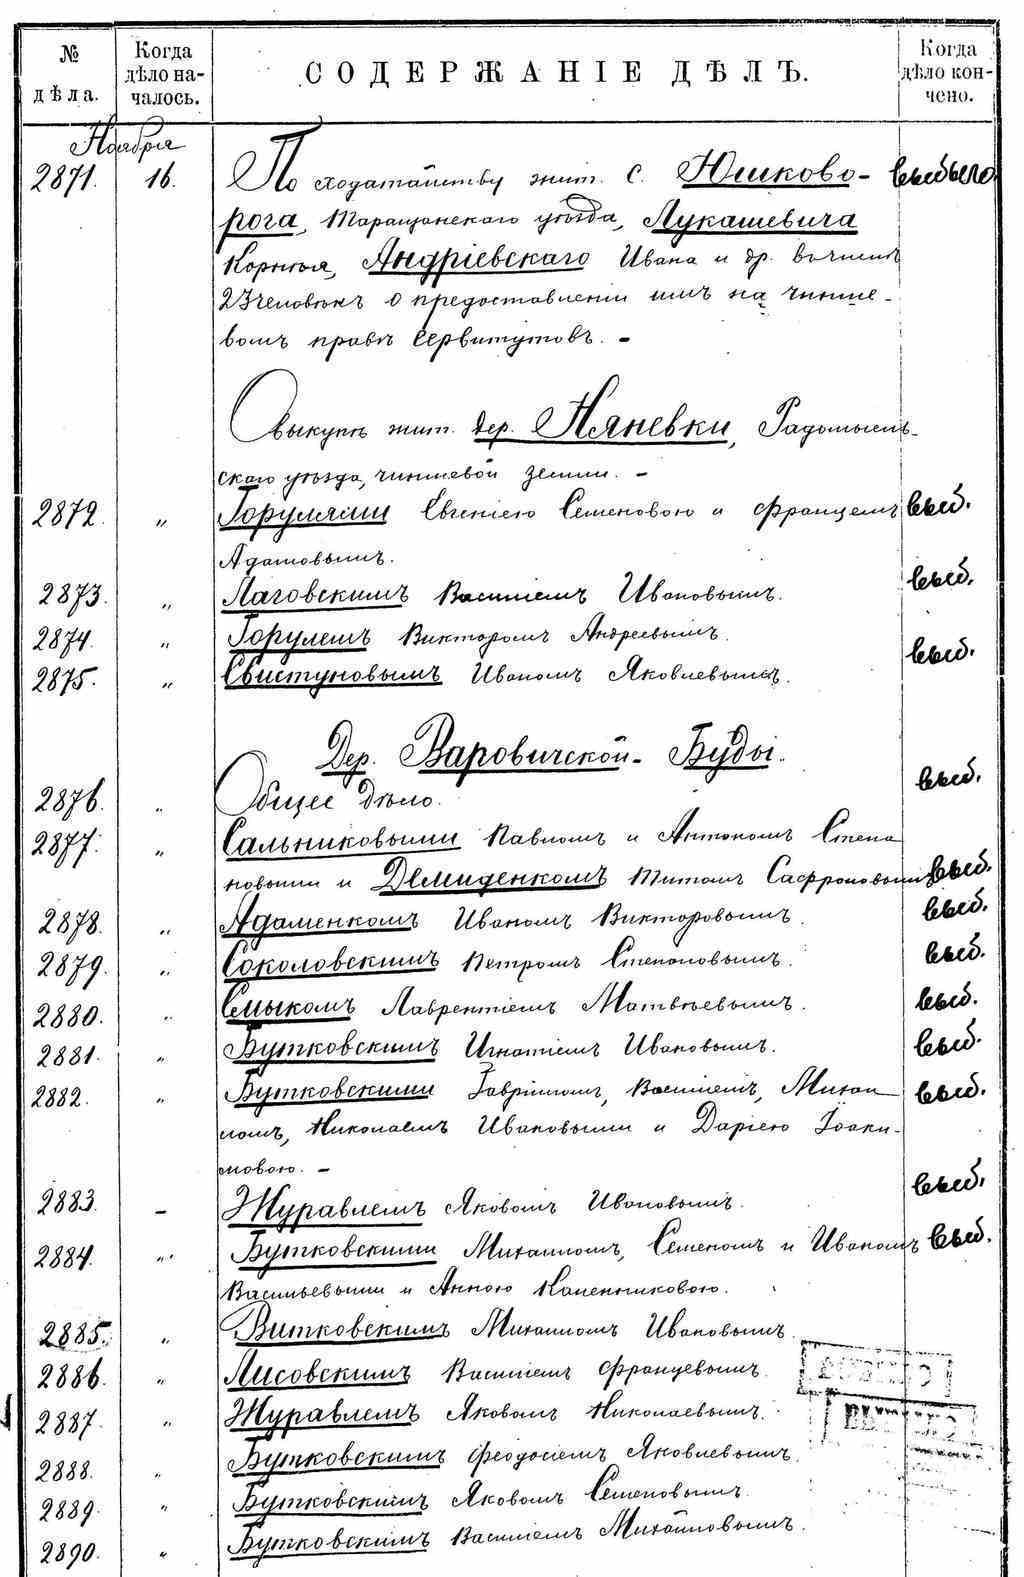 № дѣла.
Когда дѣло на-чалось.
СОДЕРЖАНІЕ ДѢЛЪ.
Когда дѣло кон-чено.
Ноября
2871. 16. По ходатайству жит. с. Юшково- выбыло.
рога, Таращанскаго уѣзда, Лукашевича
Корнѣя, Андріевскаго Ивана и др. въ числѣ
23 человѣкъ о предоставленіи имъ на чинше-
вомъ правѣ сервитутовъ. –
О выкупѣ жит. дер. Няневки, Радомысль-
скаго уѣзда, чиншевой земли. –
2872. „ Горулями Евгеніею Семеновою и Францемъ выб.
Адамовымъ.
2873. „ Лаговскимъ Василіемъ Ивановымъ. выб.
2874. „ Горулемъ Викторомъ Андреевымъ.
2875. „ Свистуновымъ Иваномъ Яковлевымъ. выб.
Дер. Варовичской-Буды.
2876. „ Общее дѣло. выб.
2877. „ Сальниковыми Павломъ и Антономъ Степа
новыми и Демиденкомъ Титомъ Сафроновымъ выб.
2878. „ Адаменкомъ Иваномъ Викторовымъ. выб.
2879. „ Соколовскимъ Петромъ Степановымъ. выб.
2880. „ Смыкомъ Лаврентіемъ Матвѣевымъ. выб.
2881. „ Бутковскимъ Игнатіемъ Ивановымъ. выб.
2882. „ Бутковскими Гавріиломъ, Василіемъ, Михаи выб.
ломъ, Николаемъ Ивановыми и Даріею Іоаки-
мовою. –
2883. – Журавлемъ Яковомъ Ивановымъ. выб.
2884. „ Бутковскими Михаиломъ, Семеномъ и Иваномъ выб.
Васильевыми и Анною Каленниковою.
2885. „ Витковскимъ Михаиломъ Ивановымъ.
2886. „ Лисовскимъ Василіемъ Францевымъ.
2887. „ Журавлемъ Яковомъ Николаевымъ.
2888. „ Бутковскимъ Феодосіемъ Яковлевымъ.
2889. „ Бутковскимъ Яковомъ Семеновымъ.
2890. „ Бутковскимъ Василіемъ Михайловымъ.